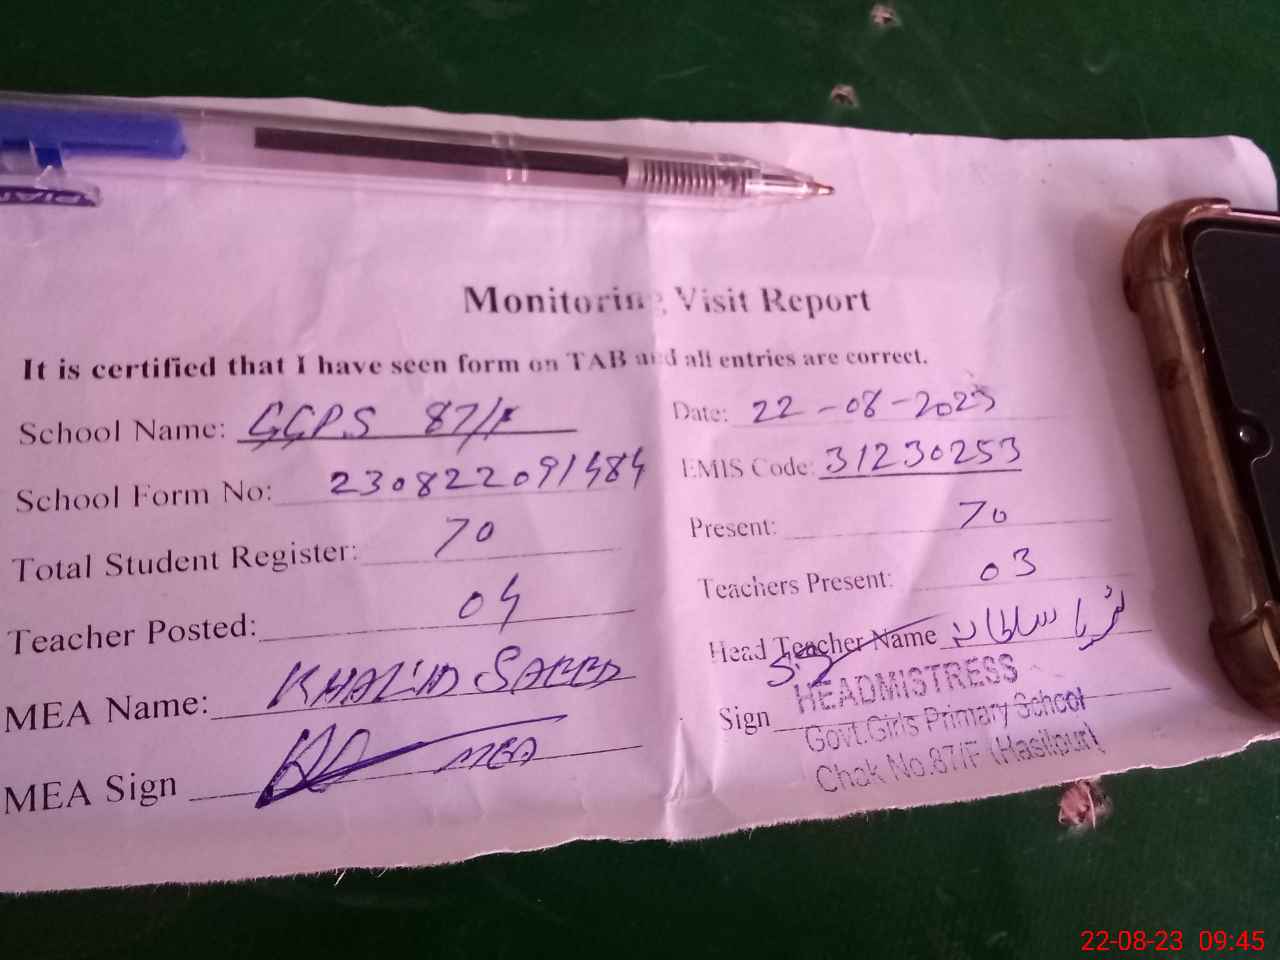 PIAN
Monitoring Visit Report
It is certified that I have seen form on TAB and all entries are correct.
School Name: GGPS 87/F
Date: 22-08-2023
School Form No: 230822091484
EMIS Code: 31230253
Total Student Register: 70
Present: 70
Teacher Posted: 04
Teachers Present: 03
Head Teacher Name ثریا سلطانہ
MEA Name: KHALID SAEED
Sign
HEADMISTRESS
Govt.Girls Primary School
Chak No.87/F (Hasilpur)
MEA Sign MEA
22-08-23 09:45